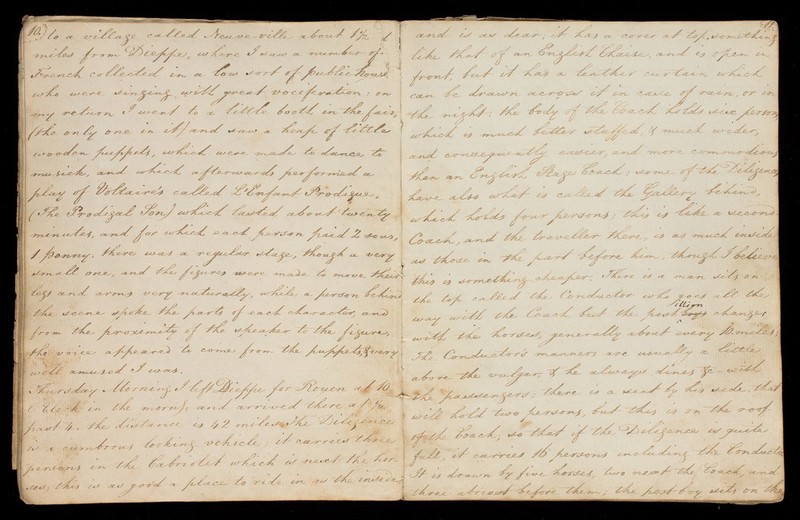 10.) to a village called Neuve-ville about 1½
miles from Dieppe, where I saw a number of
French collected in a low sort of public house
who were singing with great vociferation; on
my return I went to a little booth in the fair,
(the only one in it) and saw a heap of little
wooden puppets, which were made to dance to
musick, and which afterwards performed a
play of Voltaire's called L'Enfant Prodigue.
(The Prodigal Son) which lasted about twenty
minutes, and for which each person paid 2 sous,
1 penny. there was a regular stage, though a very
small one, and the figures were made to move their
legs and arms very naturally, while a person behind
the scene spoke the parts of each character, and
from the proximity of the speaker to the figures,
the voice appeared to come from the puppets, & very
well amused I was.
Thursday Morning I left Dieppe for Rouen at 10
O'Clock in the morng. and arrived there at ½
past 4. the distance is 42 miles. The Diligence
is a cumbrous looking vehicle; it carries three
persons in the Cabriolet which is next the hor
ses; this is as good a place to ride in as the inside
11.
and is as dear; it has a cover at top, something
like that of an English Chaise, and is open in
front, but it has a leather curtain which
can be drawn across it in case of rain, or in
the night: the body of the Coach holds six persons,
which is much better stuffed, & much wider,
and consequently easier, and more commodious
than an English Stage Coach; some of the Diligences
have also what is called the Gallery behind,
which holds four persons; this is like a second
Coach, and the traveller there, is as much inside
as those in the part before him, though I believe
this is something cheaper. There is a man sits on
the top called the Conductor who goes all the
way with the Coach but the postillion changes
with the horses, generally about every 10 miles.
The Conductor's manners are usually a little
above the vulgar, & he always dines &c. with
the passengers; there is a seat by his side, that
will hold two persons, but this is on the roof
of the Coach; so that if the Diligence is quite
full, it carries 16 persons including the Conductor
It is drawn by five horses, two next the Coach, and
three abreast before them; the post boy sits on the